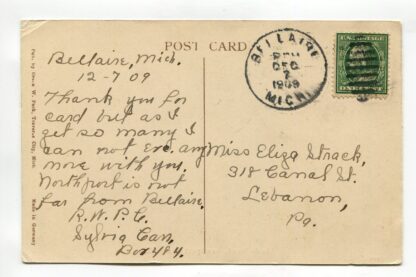 POST CARD
BELLAIRE
DEC
7
1909
MICH.
Bellaire, Mich.
12-7 09
Thank you for
card but as I
get so many I
can not exc. any
more with you.
Northport is not
far from Bellaire.
R.W.P.C.
Sylvia
Box 484
Miss Eliza Strack,
318 Canal St.
Lebanon,
Pa.
Made in Germany